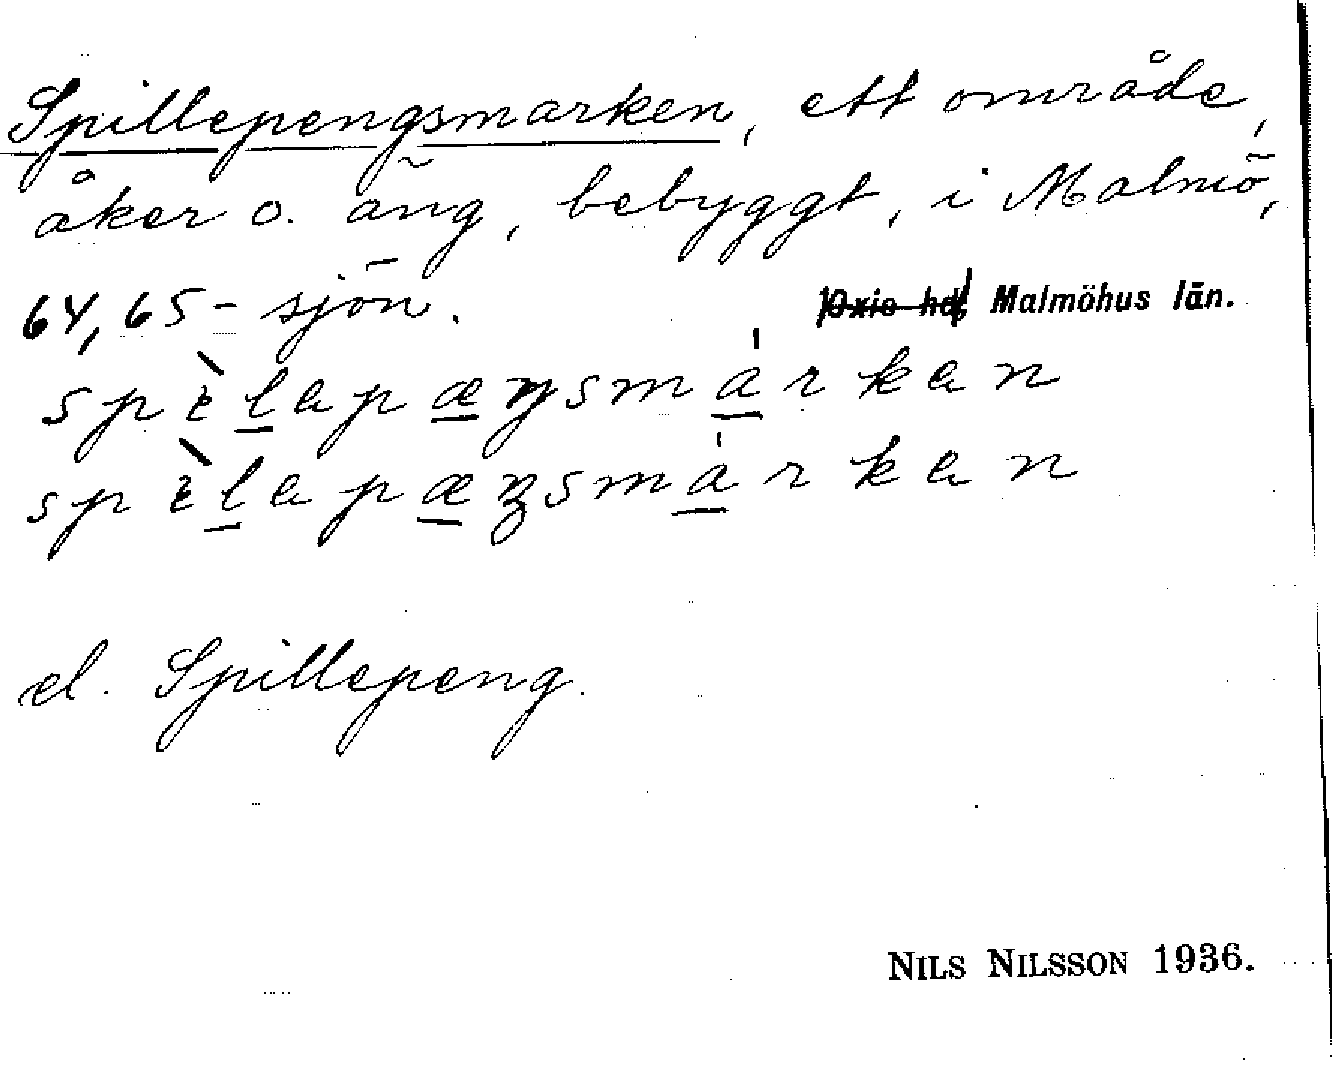 Spillepengsmarken, ett område,
åker o. äng, bebyggt, i Malmö,
64,65 - sjön. Oxie hd, Malmöhus län.
el. Spillepeng.
NILS NILSSON 1936.